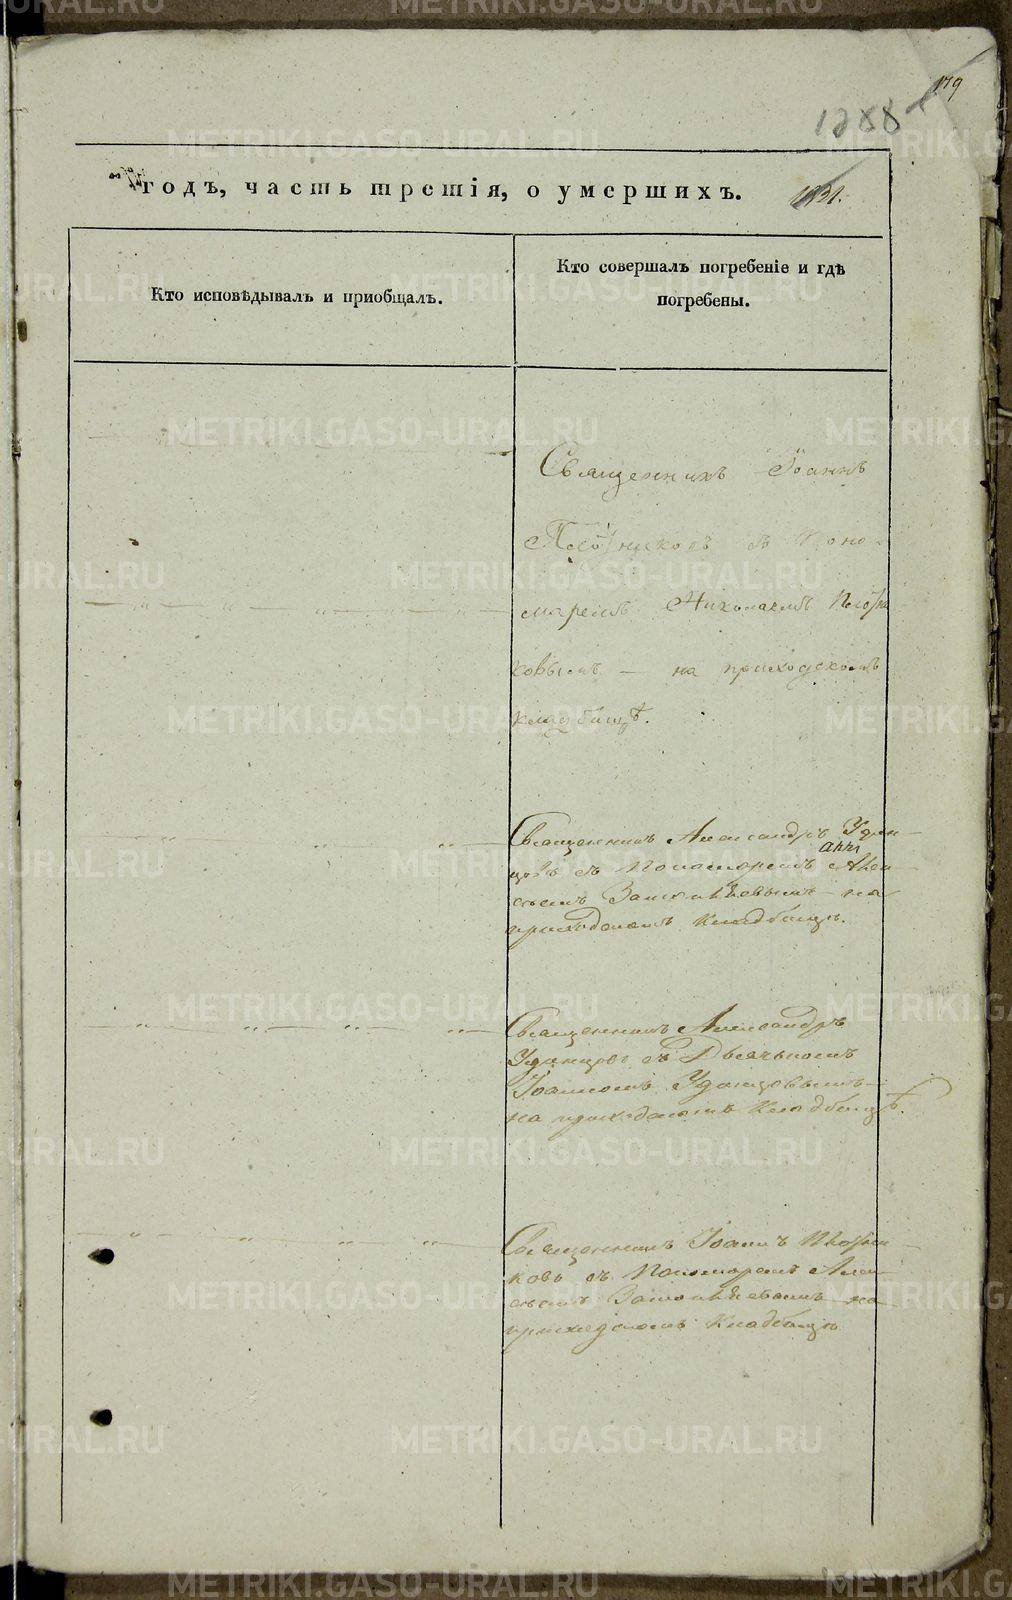 179
1288
годъ, часть третія, о умершихъ. 1131.
Кто исповѣдывалъ и приобщалъ.
Кто совершалъ погребеніе и гдѣ
погребены.
Священникъ Іоаннъ
Плотниковъ съ Поно-
маремъ Николаемъ Плотни
ковымъ — на приходскомъ
кладбищѣ.
Священникъ Александръ Удин-
цовъ съ Пономаремъ
на
приходскомъ Кладбищѣ.
Священникъ Александръ
Удинцовъ съ Дьячькомъ
Іоанномъ Удинцовымъ
на приходскомъ Кладбищѣ.
Священникъ Іоаннъ Плотни
ковъ съ Пономаремъ
на
приходскомъ Кладбищѣ
METRIKI.GASO-URAL.RU